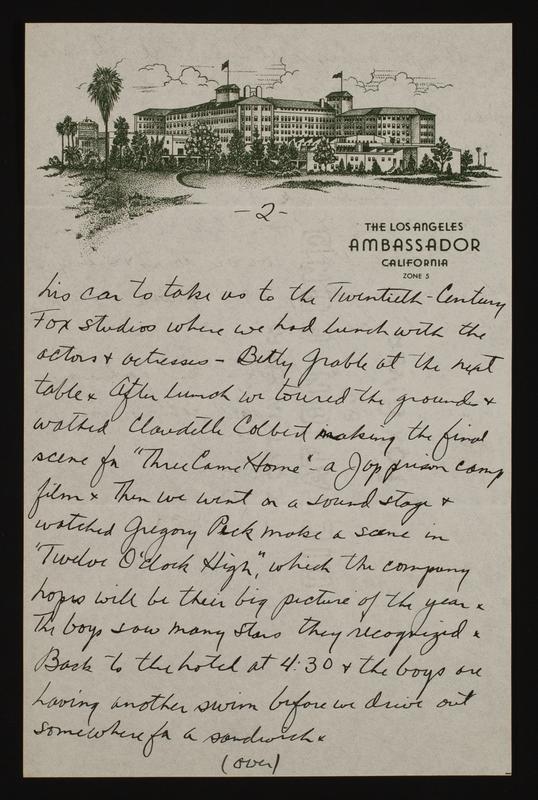 - 2 -
THE LOS ANGELES
AMBASSADOR
CALIFORNIA
ZONE 5
his car to take us to the Twentieth-Century
Fox studios where we had lunch with the
actors & actresses - Betty Grable at the next
table x After lunch we toured the grounds &
wathed Claudette Colbert making the final
scene fn "Three Came Home" - a Jap prison camp
film x Then we went on a sound stage &
watched Gregory Peck make a scene in
"Twelve O'Clock High", which the company
hopes will be their big picture of the year x
The boys saw many stars they recognized x
Back to the hotel at 4:30 & the boys are
having another swim before we drive out
somewhere fn a sandwich x
(over)